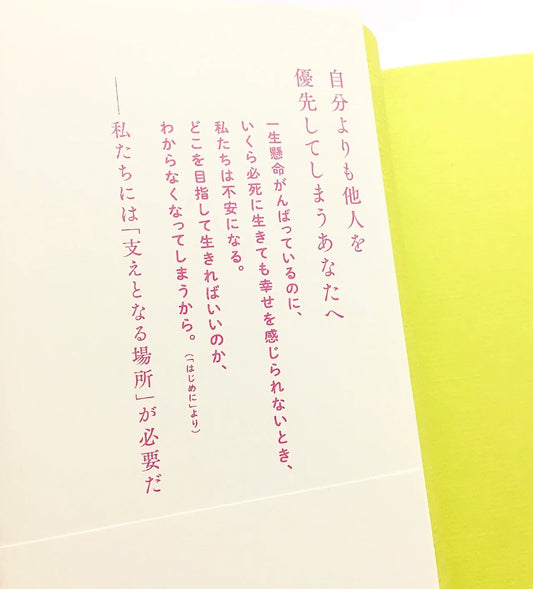 自分よりも他人を
優先してしまうあなたへ
一生懸命がんばっているのに、
いくら必死に生きても幸せを感じられないとき、
私たちは不安になる。
どこを目指して生きればいいのか、
わからなくなってしまうから。(「はじめに」より)
——私たちには「支えとなる場所」が必要だ